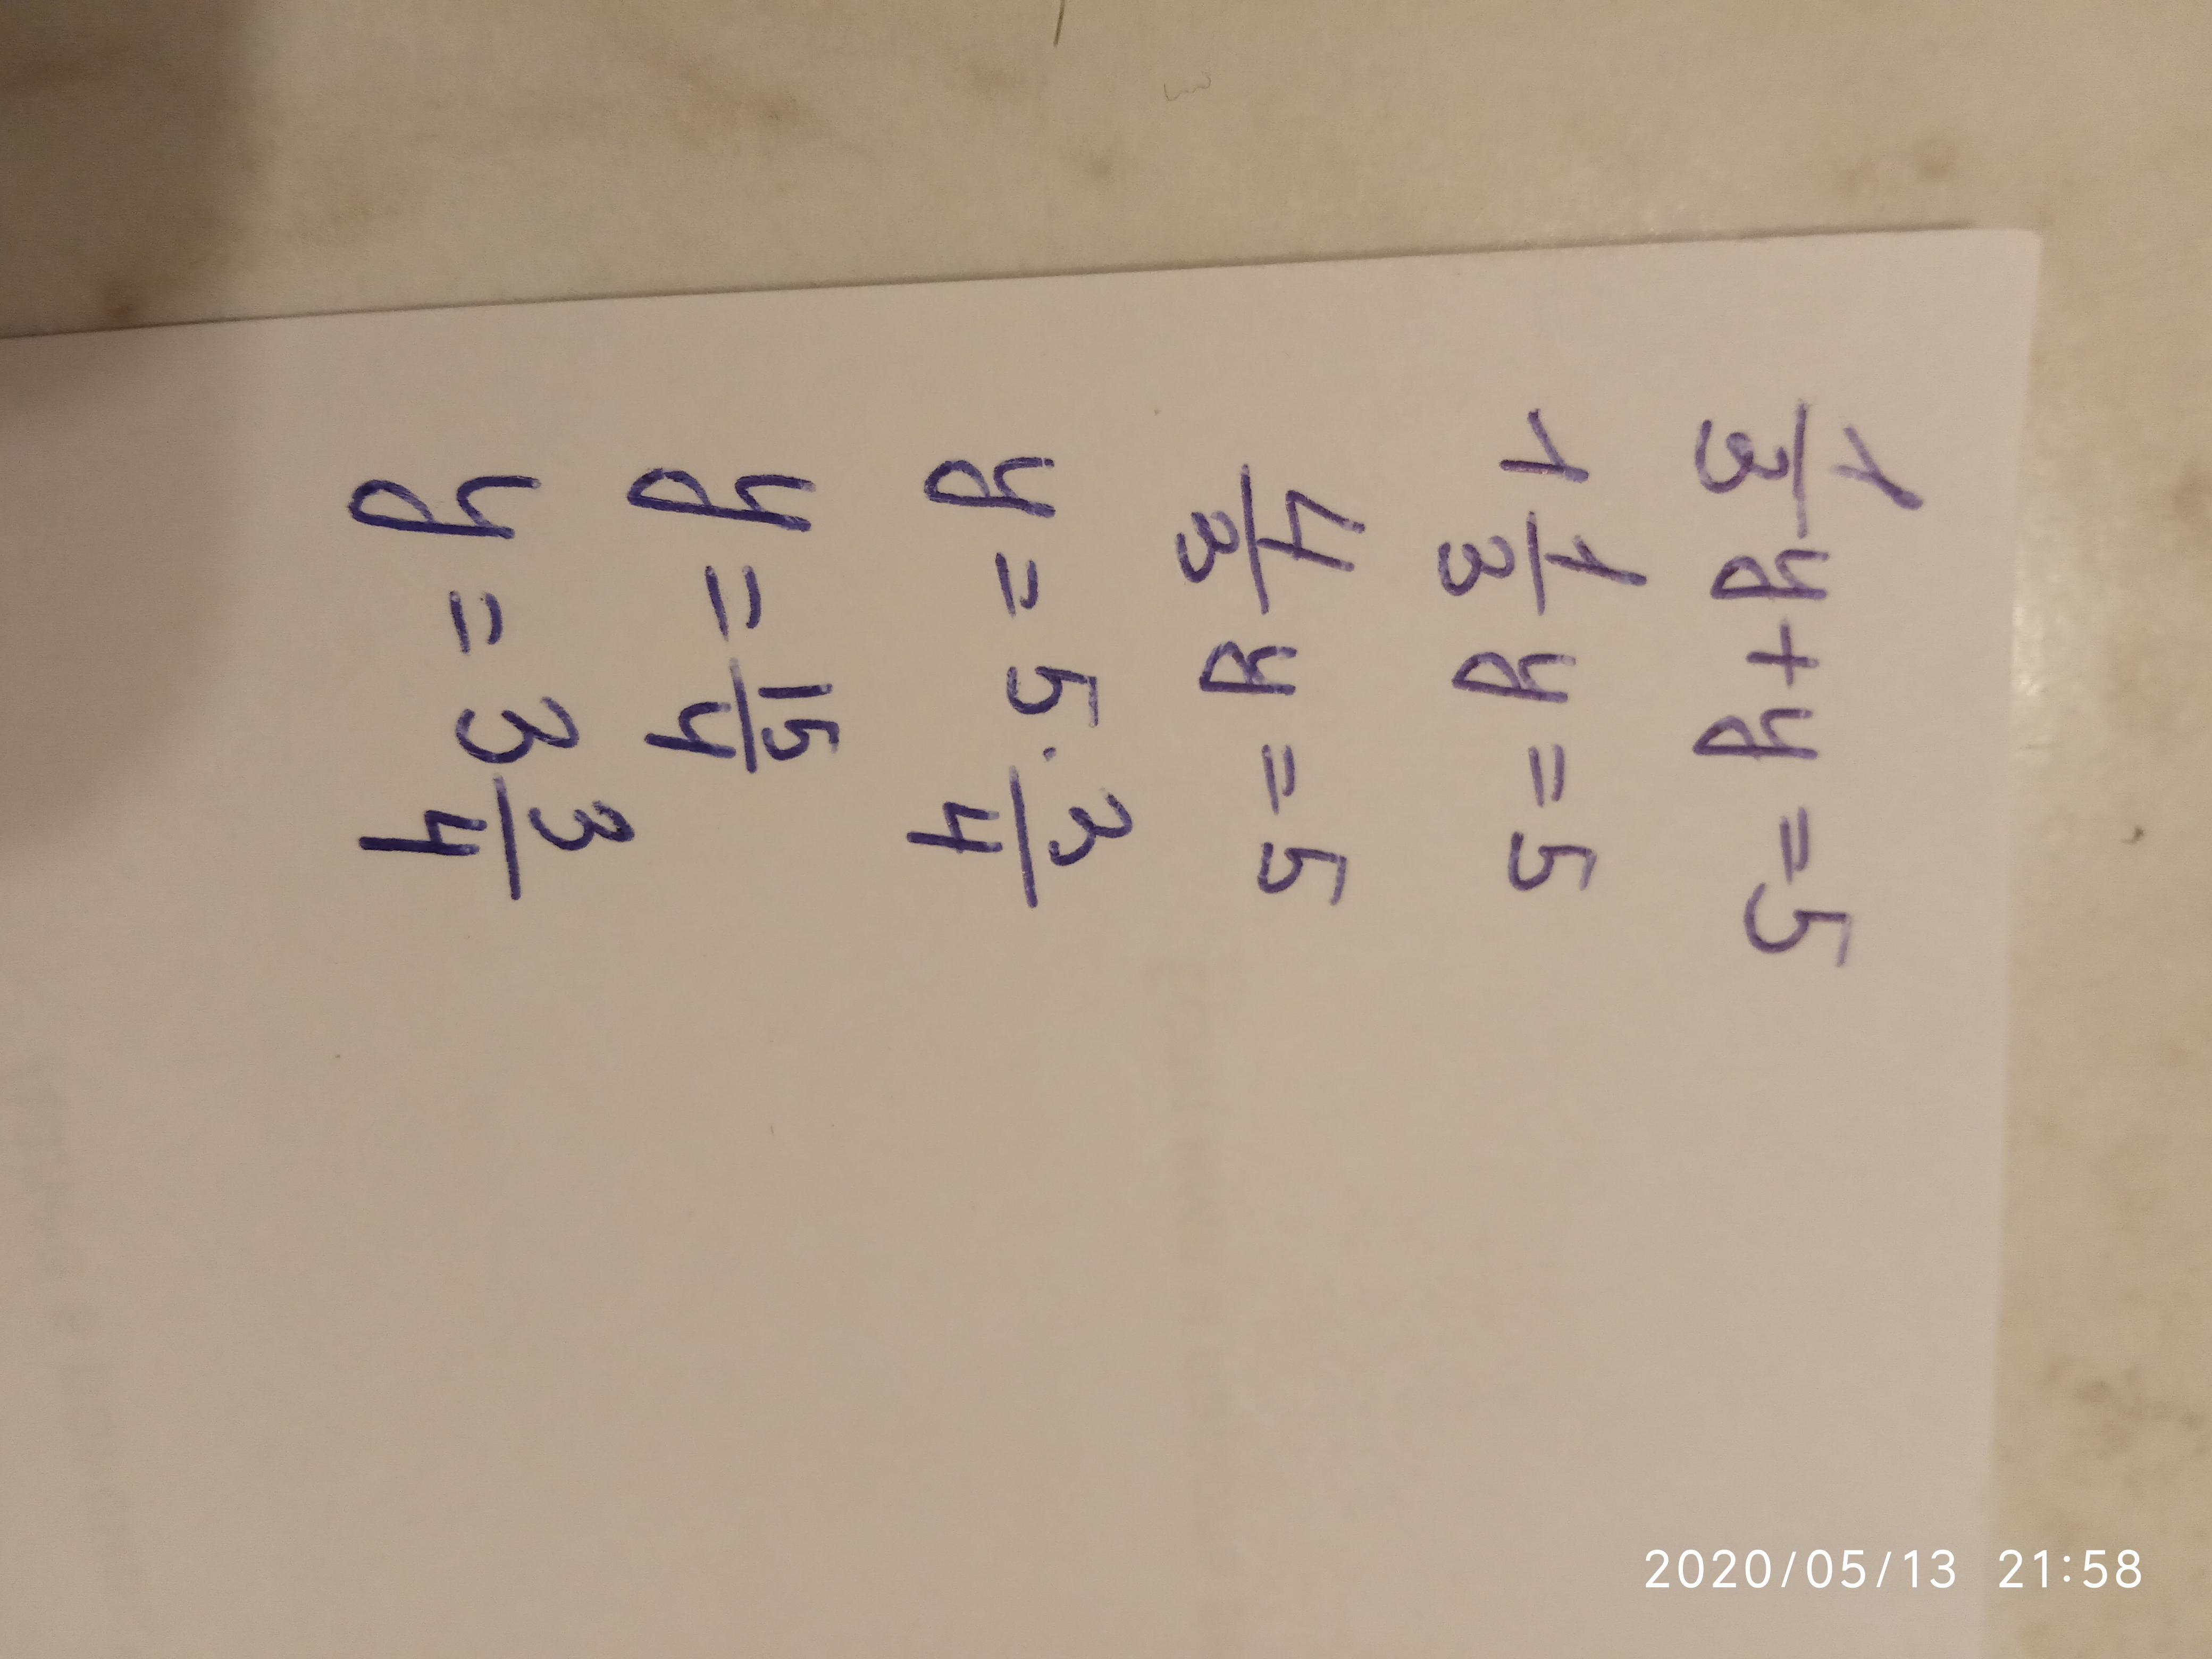 1/3 y + y = 5
1 1/3 y = 5
4/3 y = 5
y = 5 · 3/4
y = 15/4
y = 3 3/4
2020/05/13 21:58